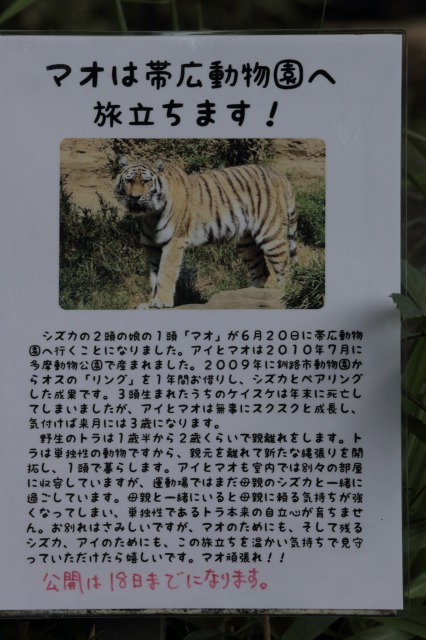 マオは帯広動物園へ
旅立ちます！
シズカの２頭の娘の１頭「マオ」が６月２０日に帯広動物
園へ行くことになりました。アイとマオは２０１０年７月に
多摩動物公園で産まれました。２００９年に釧路市動物園か
らオスの「リング」を１年間お借りし、シズカとペアリング
した成果です。３頭生まれたうちのケイスケは年末に死亡し
てしまいましたが、アイとマオは無事にスクスクと成長し、
気付けば来月には３歳になります。
野生のトラは１歳半から２歳くらいで親離れをします。ト
ラは単独性の動物ですから、親元を離れて新たな縄張りを開
拓し、１頭で暮らします。アイとマオも室内では別々の部屋
に収容していますが、運動場ではまだ母親のシズカと一緒に
過ごしています。母親と一緒にいると母親に頼る気持ちが強
くなってしまい、単独性であるトラ本来の自立心が育ちませ
ん。お別れはさみしいですが、マオのためにも、そして残る
シズカ、アイのためにも、この旅立を温かい気持ちで見守
っていただけたら嬉しいです。マオ頑張れ！！
公開は18日までになります。